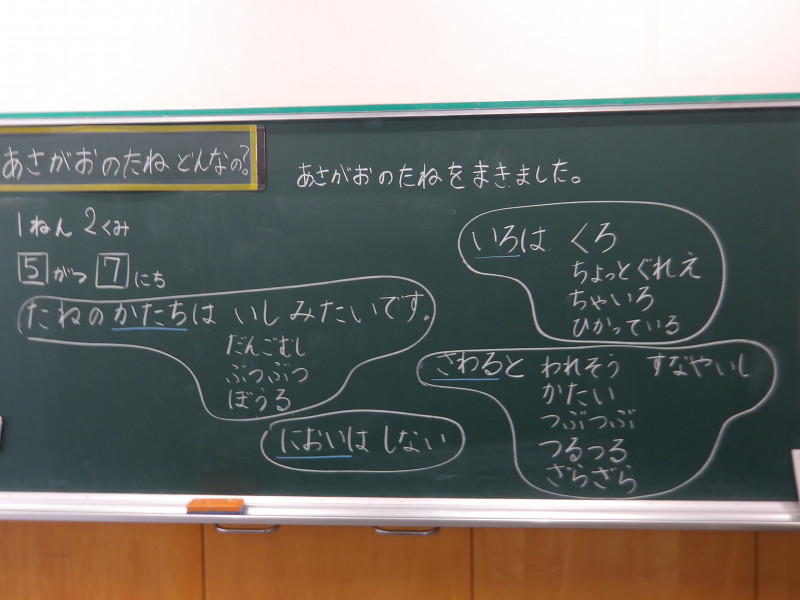 あさがおのたねどんなの?
あさがおのたねをまきました。
1ねん2くみ
5がつ7にち
たねのかたちは いしみたいです。
だんごむし
ぶつぶつ
ぼうる
においは しない
いろは くろ
ちょっとぐれえ
ちゃいろ
ひかっている
さわると われそう すなやいし
かたい
つぶつぶ
つるつる
ざらざら